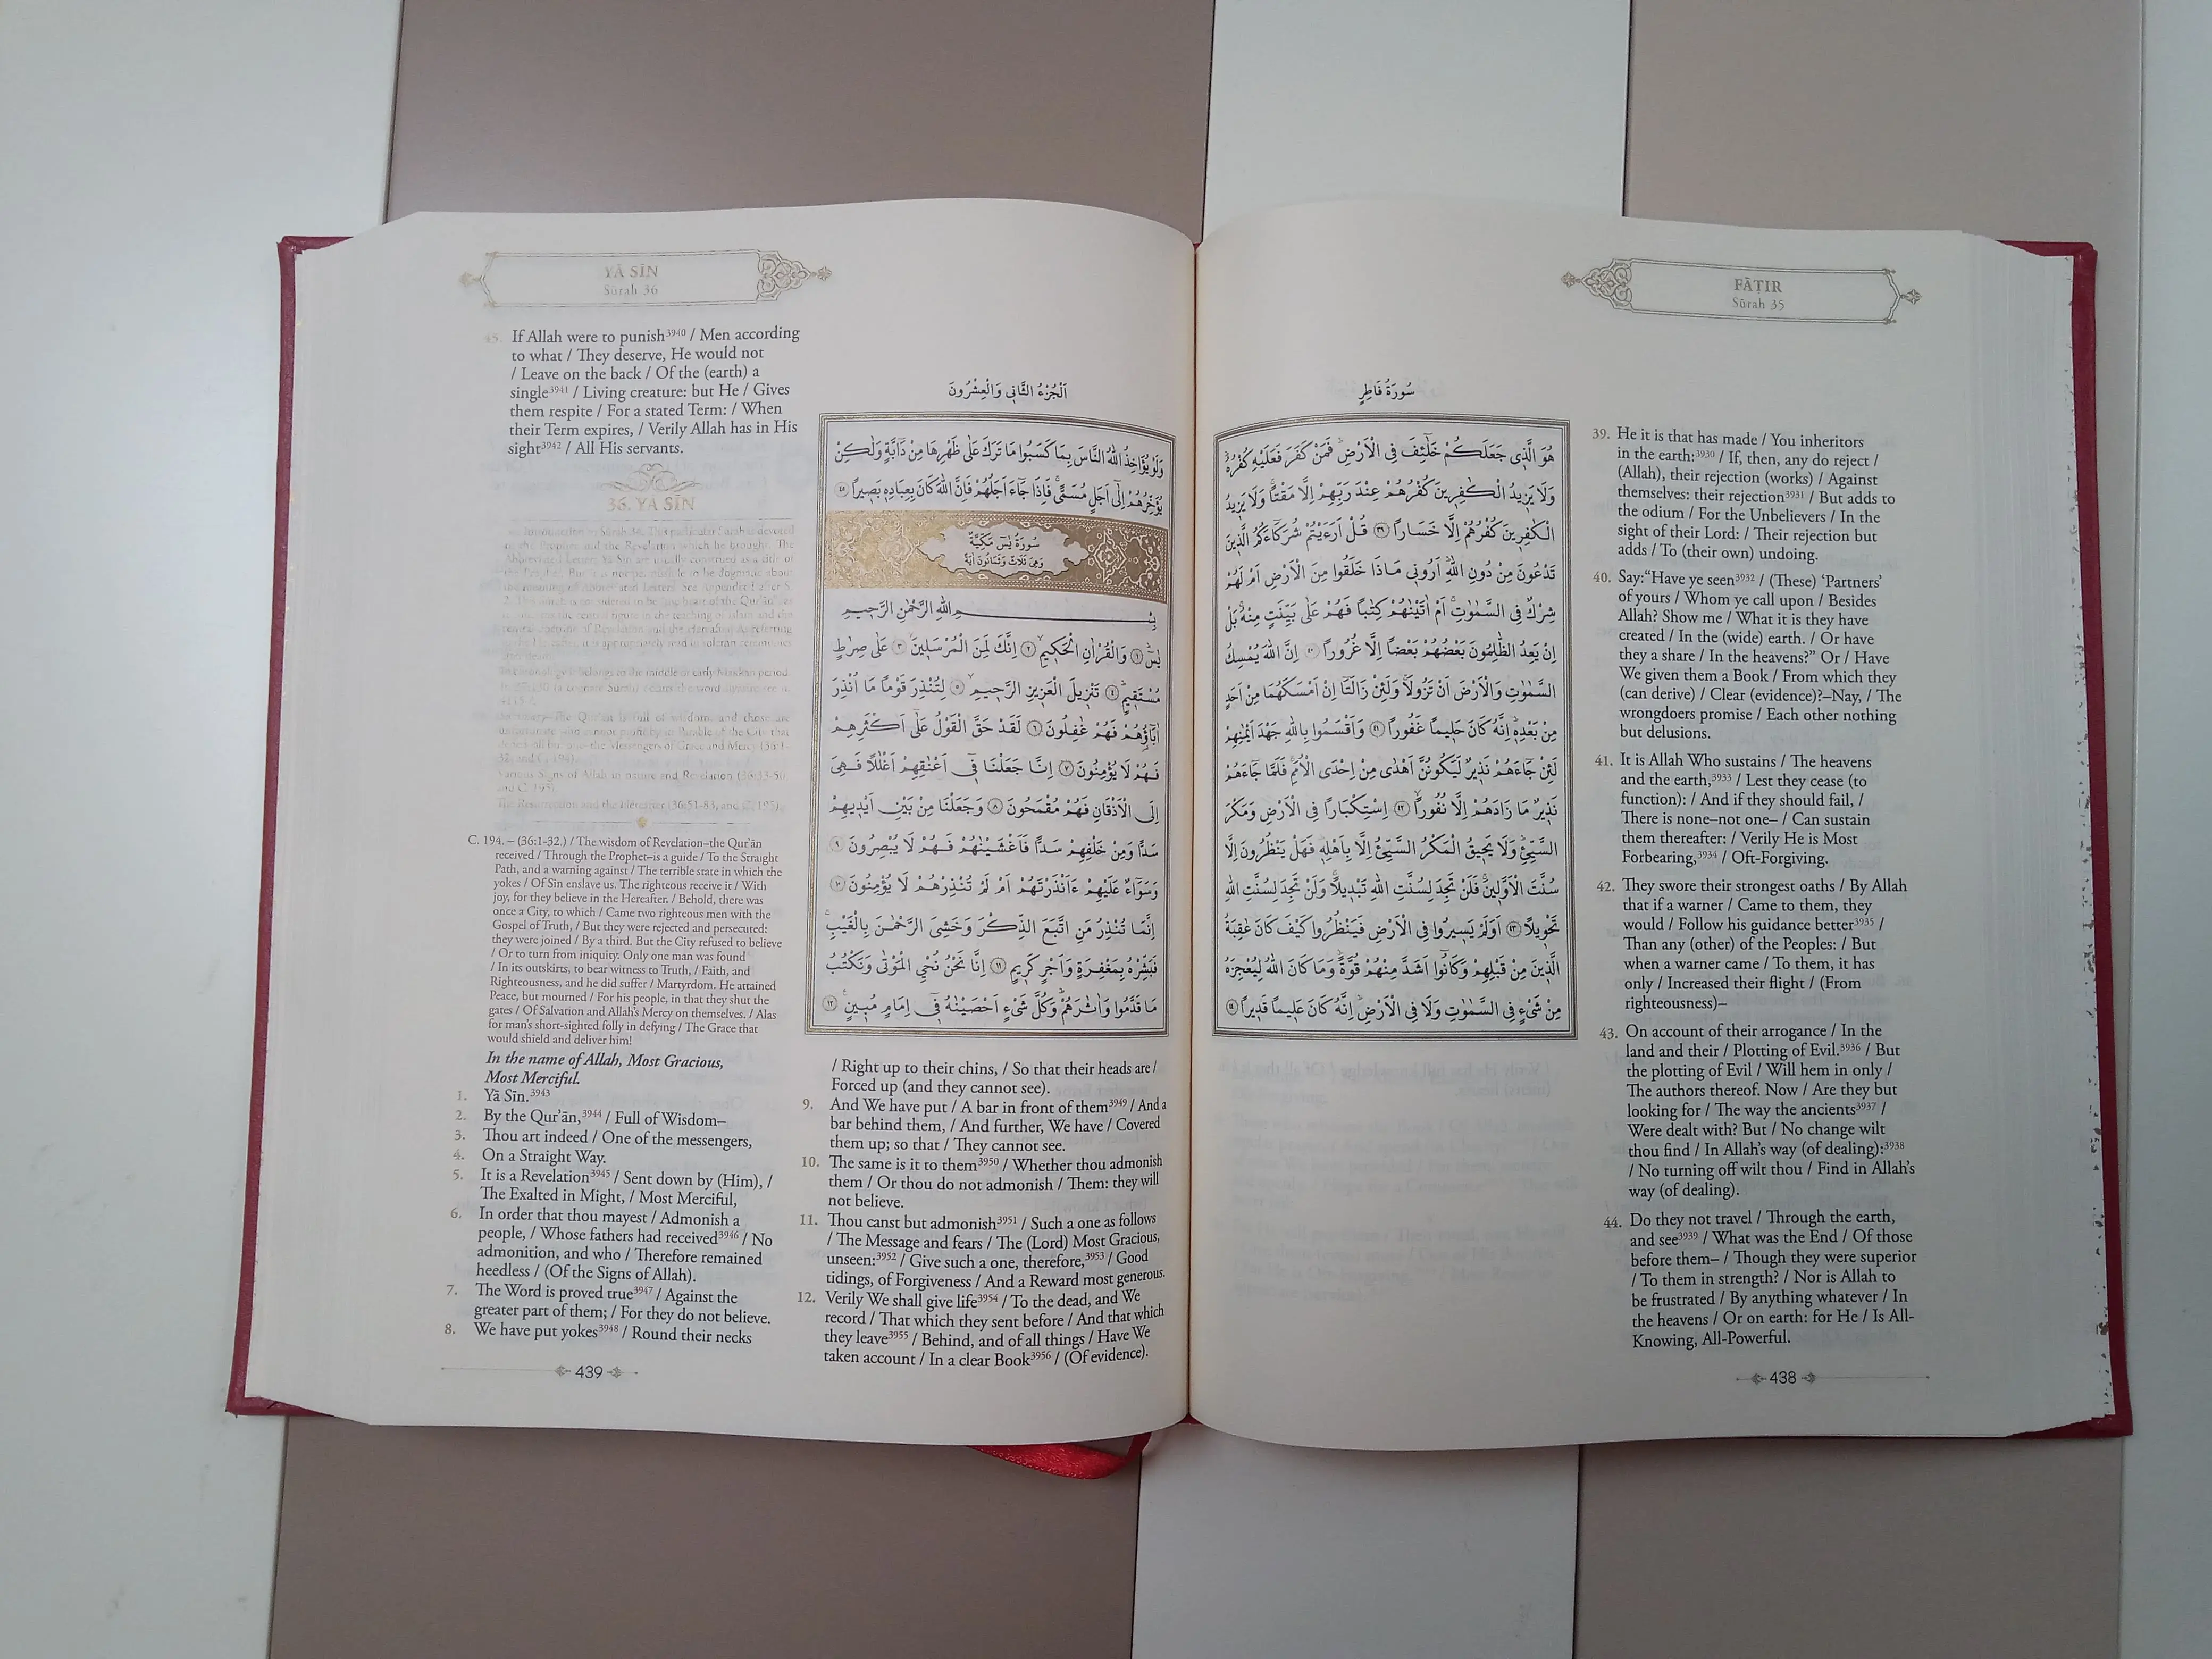 FĀṬIR
Sūrah 35
سُورَةُ فَاطِرٍ
هُوَ الَّذ۪ي جَعَلَكُمْ خَلَٓائِفَ فِي الْاَرْضِۜ فَمَنْ كَفَرَ فَعَلَيْهِ كُفْرُهُۜ
وَلَا يَز۪يدُ الْكَافِر۪ينَ كُفْرُهُمْ عِنْدَ رَبِّهِمْ اِلَّا مَقْتاًۚ وَلَا يَز۪يدُ
الْكَافِر۪ينَ كُفْرُهُمْ اِلَّا خَسَاراً ﴿٣٩﴾ قُلْ اَرَاَيْتُمْ شُرَكَٓاءَكُمُ الَّذ۪ينَ
تَدْعُونَ مِنْ دُونِ اللّٰهِۜ اَرُون۪ي مَاذَا خَلَقُوا مِنَ الْاَرْضِ اَمْ لَهُمْ
شِرْكٌ فِي السَّمٰوَاتِۚ اَمْ اٰتَيْنَاهُمْ كِتَاباً فَهُمْ عَلٰى بَيِّنَتٍ مِنْهُۚ بَلْ
اِنْ يَعِدُ الظَّالِمُونَ بَعْضُهُمْ بَعْضاً اِلَّا غُرُوراً ﴿٤٠﴾ اِنَّ اللّٰهَ يُمْسِكُ
السَّمٰوَاتِ وَالْاَرْضَ اَنْ تَزُولَاۚ وَلَئِنْ زَالَتَٓا اِنْ اَمْسَكَهُمَا مِنْ اَحَدٍ
مِنْ بَعْدِه۪ۜ اِنَّهُ كَانَ حَل۪يماً غَفُوراً ﴿٤١﴾ وَاَقْسَمُوا بِاللّٰهِ جَهْدَ اَيْمَانِهِمْ
لَئِنْ جَٓاءَهُمْ نَذ۪يرٌ لَيَكُونُنَّ اَهْدٰى مِنْ اِحْدَى الْاُمَمِۚ فَلَمَّا جَٓاءَهُمْ
نَذ۪يرٌ مَا زَادَهُمْ اِلَّا نُفُوراًۙ ﴿٤٢﴾ اِسْتِكْبَاراً فِي الْاَرْضِ وَمَكْرَ
السَّيِّئِۜ وَلَا يَح۪يقُ الْمَكْرُ السَّيِّئُ اِلَّا بِاَهْلِه۪ۜ فَهَلْ يَنْظُرُونَ اِلَّا
سُنَّتَ الْاَوَّل۪ينَۚ فَلَنْ تَجِدَ لِسُنَّتِ اللّٰهِ تَبْد۪يلاًۚ وَلَنْ تَجِدَ لِسُنَّتِ اللّٰهِ
تَحْو۪يلاً ﴿٤٣﴾ اَوَلَمْ يَس۪يرُوا فِي الْاَرْضِ فَيَنْظُرُوا كَيْفَ كَانَ عَاقِبَةُ
الَّذ۪ينَ مِنْ قَبْلِهِمْ وَكَانُٓوا اَشَدَّ مِنْهُمْ قُوَّةًۜ وَمَا كَانَ اللّٰهُ لِيُعْجِزَهُ
مِنْ شَيْءٍ فِي السَّمٰوَاتِ وَلَا فِي الْاَرْضِۜ اِنَّهُ كَانَ عَل۪يماً قَد۪يراً ﴿٤٤﴾
39. He it is that has made / You inheritors
in the earth:3930 / If, then, any do reject /
(Allah), their rejection (works) / Against
themselves: their rejection3931 / But adds to
the odium / For the Unbelievers / In the
sight of their Lord: / Their rejection but
adds / To (their own) undoing.
40. Say:“Have ye seen3932 / (These) ‘Partners’
of yours / Whom ye call upon / Besides
Allah? Show me / What it is they have
created / In the (wide) earth. / Or have
they a share / In the heavens?” Or / Have
We given them a Book / From which they
(can derive) / Clear (evidence)?–Nay, / The
wrongdoers promise / Each other nothing
but delusions.
41. It is Allah Who sustains / The heavens
and the earth,3933 / Lest they cease (to
function): / And if they should fail, /
There is none–not one– / Can sustain
them thereafter: / Verily He is Most
Forbearing,3934 / Oft-Forgiving.
42. They swore their strongest oaths / By Allah
that if a warner / Came to them, they
would / Follow his guidance better3935 /
Than any (other) of the Peoples: / But
when a warner came / To them, it has
only / Increased their flight / (From
righteousness)–
43. On account of their arrogance / In the
land and their / Plotting of Evil.3936 / But
the plotting of Evil / Will hem in only /
The authors thereof. Now / Are they but
looking for / The way the ancients3937 /
Were dealt with? But / No change wilt
thou find / In Allah’s way (of dealing):3938
/ No turning off wilt thou / Find in Allah’s
way (of dealing).
44. Do they not travel / Through the earth,
and see3939 / What was the End / Of those
before them– / Though they were superior
/ To them in strength? / Nor is Allah to
be frustrated / By anything whatever / In
the heavens / Or on earth: for He / Is All-
Knowing, All-Powerful.
438
YĀ SĪN
Sūrah 36
45. If Allah were to punish3940 / Men according
to what / They deserve, He would not
/ Leave on the back / Of the (earth) a
single3941 / Living creature: but He / Gives
them respite / For a stated Term: / When
their Term expires, / Verily Allah has in His
sight3942 / All His servants.
36. YĀ SĪN
C. 194.– (36:1-32.) / The wisdom of Revelation–the Qur’ān
received / Through the Prophet–is a guide / To the Straight
Path, and a warning against / The terrible state in which the
yokes / Of Sin enslave us. The righteous receive it / With
joy, for they believe in the Hereafter. / Behold, there was
once a City, to which / Came two righteous men with the
Gospel of Truth, / But they were rejected and persecuted:
they were joined / By a third. But the City refused to believe
/ Or to turn from iniquity. Only one man was found
/ In its outskirts, to bear witness to Truth, / Faith, and
Righteousness, and he did suffer / Martyrdom. He attained
Peace, but mourned / For his people, in that they shut the
gates / Of Salvation and Allah’s Mercy on themselves. / Alas
for man’s short-sighted folly in defying / The Grace that
would shield and deliver him!
In the name of Allah, Most Gracious,
Most Merciful.
1. Yā Sīn.3943
2. By the Qur’ān,3944 / Full of Wisdom–
3. Thou art indeed / One of the messengers,
4. On a Straight Way.
5. It is a Revelation3945 / Sent down by (Him), /
The Exalted in Might, / Most Merciful,
6. In order that thou mayest / Admonish a
people, / Whose fathers had received3946 / No
admonition, and who / Therefore remained
heedless / (Of the Signs of Allah).
7. The Word is proved true3947 / Against the
greater part of them; / For they do not believe.
8. We have put yokes3948 / Round their necks
اَلْجُزْءُ الثَّانِي وَالْعِشْرُونَ
وَلَوْ يُؤَاخِذُ اللّٰهُ النَّاسَ بِمَا كَسَبُوا مَا تَرَكَ عَلٰى ظَهْرِهَا مِنْ دَٓابَّةٍ وَلٰكِنْ
يُؤَخِّرُهُمْ اِلٰٓى اَجَلٍ مُسَمًّىۚ فَاِذَا جَٓاءَ اَجَلُهُمْ فَاِنَّ اللّٰهَ كَانَ بِعِبَادِه۪ بَص۪يراً ﴿٤٥﴾
سُورَةُ يٰسٓ مَكِّيَّةٌ
وَهِيَ ثَلَاثٌ وَثَمَانُونَ اٰيَةً
بِسْمِ اللّٰهِ الرَّحْمٰنِ الرَّح۪يمِ
يٰسٓۜ ﴿١﴾ وَالْقُرْاٰنِ الْحَك۪يمِۙ ﴿٢﴾ اِنَّكَ لَمِنَ الْمُرْسَل۪ينَۙ ﴿٣﴾ عَلٰى صِرَاطٍ
مُسْتَق۪يمٍۜ ﴿٤﴾ تَنْز۪يلَ الْعَز۪يزِ الرَّح۪يمِۙ ﴿٥﴾ لِتُنْذِرَ قَوْماً مَٓا اُنْذِرَ
اٰبَٓاؤُهُمْ فَهُمْ غَافِلُونَ ﴿٦﴾ لَقَدْ حَقَّ الْقَوْلُ عَلٰٓى اَكْثَرِهِمْ
فَهُمْ لَا يُؤْمِنُونَ ﴿٧﴾ اِنَّا جَعَلْنَا ف۪ٓي اَعْنَاقِهِمْ اَغْلَالاً فَهِيَ
اِلَى الْاَذْقَانِ فَهُمْ مُقْمَحُونَ ﴿٨﴾ وَجَعَلْنَا مِنْ بَيْنِ اَيْد۪يهِمْ
سَداًّ وَمِنْ خَلْفِهِمْ سَداًّ فَاَغْشَيْنَاهُمْ فَهُمْ لَا يُبْصِرُونَ ﴿٩﴾
وَسَوَٓاءٌ عَلَيْهِمْ ءَاَنْذَرْتَهُمْ اَمْ لَمْ تُنْذِرْهُمْ لَا يُؤْمِنُونَ ﴿١٠﴾
اِنَّمَا تُنْذِرُ مَنِ اتَّبَعَ الذِّكْرَ وَخَشِيَ الرَّحْمٰنَ بِالْغَيْبِۚ
فَبَشِّرْهُ بِمَغْفِرَةٍ وَاَجْرٍ كَر۪يمٍ ﴿١١﴾ اِنَّا نَحْنُ نُحْيِ الْمَوْتٰى وَنَكْتُبُ
مَا قَدَّمُوا وَاٰثَارَهُمْۜ وَكُلَّ شَيْءٍ اَحْصَيْنَاهُ ف۪ٓي اِمَامٍ مُب۪ينٍ۟ ﴿١٢﴾
/ Right up to their chins, / So that their heads are /
Forced up (and they cannot see).
9. And We have put / A bar in front of them3949 / And a
bar behind them, / And further, We have / Covered
them up; so that / They cannot see.
10. The same is it to them3950 / Whether thou admonish
them / Or thou do not admonish / Them: they will
not believe.
11. Thou canst but admonish3951 / Such a one as follows
/ The Message and fears / The (Lord) Most Gracious,
unseen:3952 / Give such a one, therefore,3953 / Good
tidings, of Forgiveness / And a Reward most generous.
12. Verily We shall give life3954 / To the dead, and We
record / That which they sent before / And that which
they leave3955 / Behind, and of all things / Have We
taken account / In a clear Book3956 / (Of evidence).
439